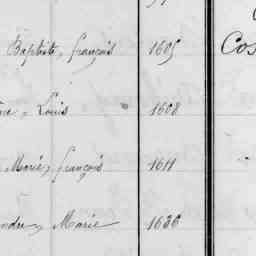 Baptiste, françois 1605
Cos
Louis 1608
Marie, françois 1611
Marie 1636